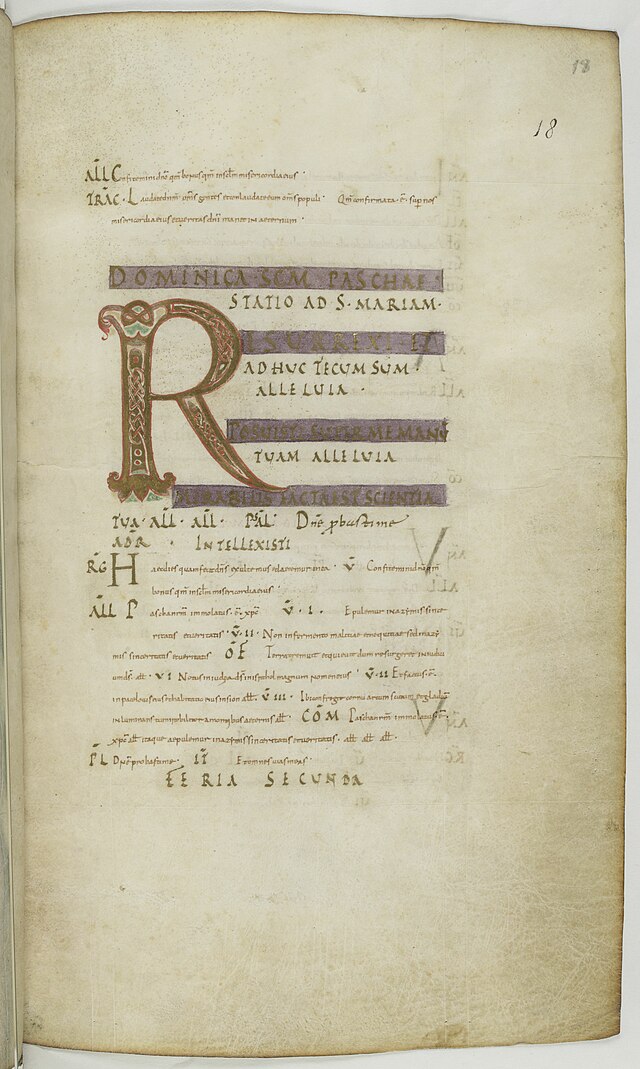 18
18
ALL Confitemini dno qm bonus qm insclm misericordia eius ·
TRAC · Laudate dnm oms gentes et conlaudate eum oms populi · Qm confirmata · e · sup nos
misericordia eius et ueritas dni manet in aeternum ·
DOMINICA SCM PASCHAE
STATIO AD S · MARIAM ·
RESURREXI ET
ADHUC TECUM SUM ·
ALLELUIA ·
POSUISTI SUPER ME MANU
TUAM ALLELUIA
MIRABILIS FACTA EST SCIENTIA
TUA · ALL · ALL · PSAL Dne probasti me
AD R · INTELLEXISTI
RG Haec dies quam fecit dns exultemus et laetemur in ea · V Confitemini dno qm
bonus qm insclm misericordia eius ·
ALL Pascha nrm immolatus · e · xpc V · I · Epulemur in azimis since
ritatis et ueritatis · V · II · Non in fermento malitiae et nequitiae sed in azi
mis sinceritatis et ueritatis OF Terra tremuit et quieuit dum resurgeret in iudicio
ds · all · V I Notus in iudaea ds in isrl magnum nomen eius V · II Et factus · e ·
in pace locus eius et habitatio eius in sion all · V III · Ibi confregit cornu arcum scutum et gladium
inluminans tu mirabiliter a montibus aeternis all · COM Pascha nrm immolatus · e ·
xpc all · itaque aepulemur in azimis sinceritatis et ueritatis · all · all · all ·
PL Dne probasti me · IT Et omnes uias meas ·
FERIA SECUNDA